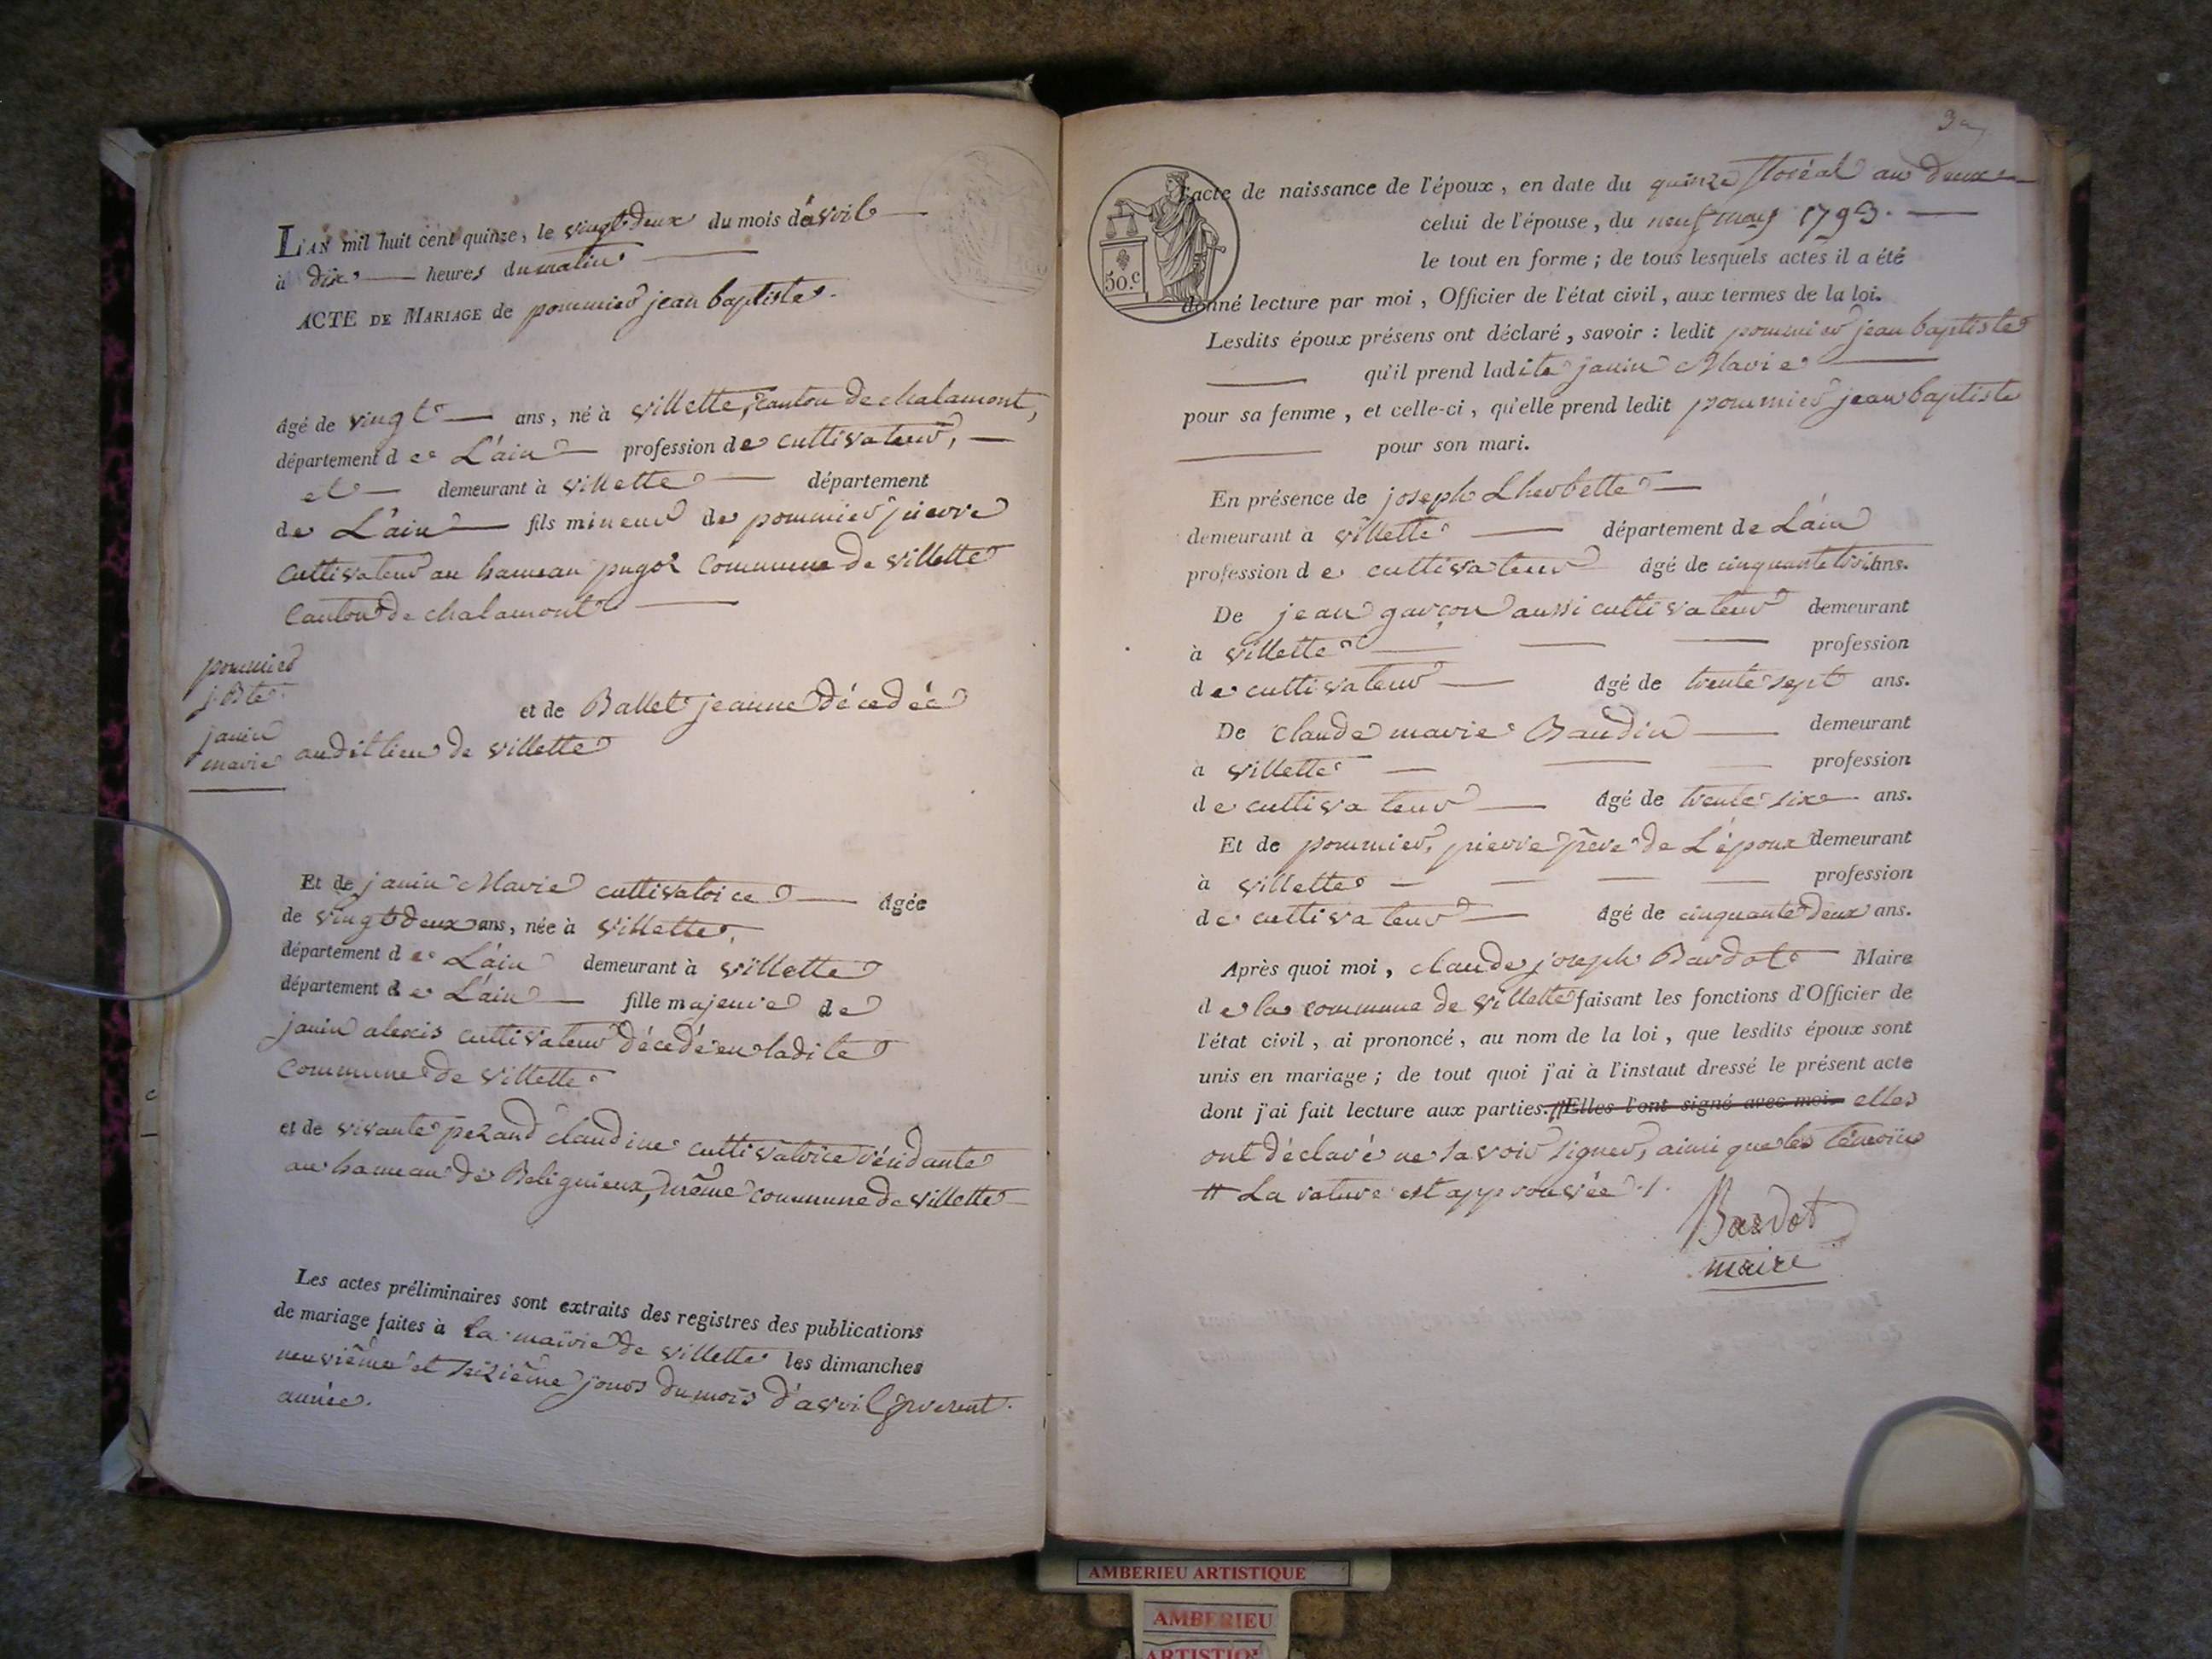 L'AN mil huit cent quinze, le vingt deux du mois d'avril
à dix heures du matin
ACTE DE MARIAGE de pommier jean baptiste.
âgé de vingt ans, né à villette, canton de chalamont,
département de L'ain profession de cultivateur,
et demeurant à villette département
de L'ain fils mineur de pommier pierre
cultivateur au hameau pugoz commune de villette
canton de chalamont
pommier
j. Bte.
janin
marie
et de Ballet jeanne décédée
audit lieu de villette
Et de janin Marie cultivatrice âgée
de vingt deux ans, née à villette,
département de L'ain demeurant à villette
département de L'ain fille majeure de
janin alexis cultivateur décédé en ladite
commune de villette
et de vivante perand claudine cultivatrice résidante
au hameau de Beligneux, même commune de villette
Les actes préliminaires sont extraits des registres des publications
de mariage faites à la mairie de villette les dimanches
neuvième et seizième jours du mois d'avril présent
année.
L'acte de naissance de l'époux, en date du quinze floréal an deux
celui de l'épouse, du neuf mars 1793.
le tout en forme ; de tous lesquels actes il a été
donné lecture par moi, Officier de l'état civil, aux termes de la loi.
50.c
Lesdits époux présens ont déclaré, savoir : ledit pommier jean baptiste
qu'il prend ladite janin Marie
pour sa femme, et celle-ci, qu'elle prend ledit pommier jean baptiste
pour son mari.
En présence de joseph Lherbette
demeurant à villette département de L'ain
profession de cultivateur âgé de cinquante trois ans.
De jean garçon aussi cultivateur demeurant
à villette profession
de cultivateur âgé de trente sept ans.
De claude marie Baudin demeurant
à villette profession
de cultivateur âgé de trente six ans.
Et de pommier, pierre père de L'époux demeurant
à villette profession
de cultivateur âgé de cinquante deux ans.
Après quoi moi, claude joseph Bardot Maire
de la commune de villette faisant les fonctions d'Officier de
l'état civil, ai prononcé, au nom de la loi, que lesdits époux sont
unis en mariage ; de tout quoi j'ai à l'instaut dressé le présent acte
dont j'ai fait lecture aux parties. // Elles l'ont signé avec moi. elles
ont déclaré ne savoir signer, ainsi que les témoins
// La rature est approuvée ./.
Bardot
maire
AMBERIEU ARTISTIQUE
AMBERIEU
ARTISTIQ